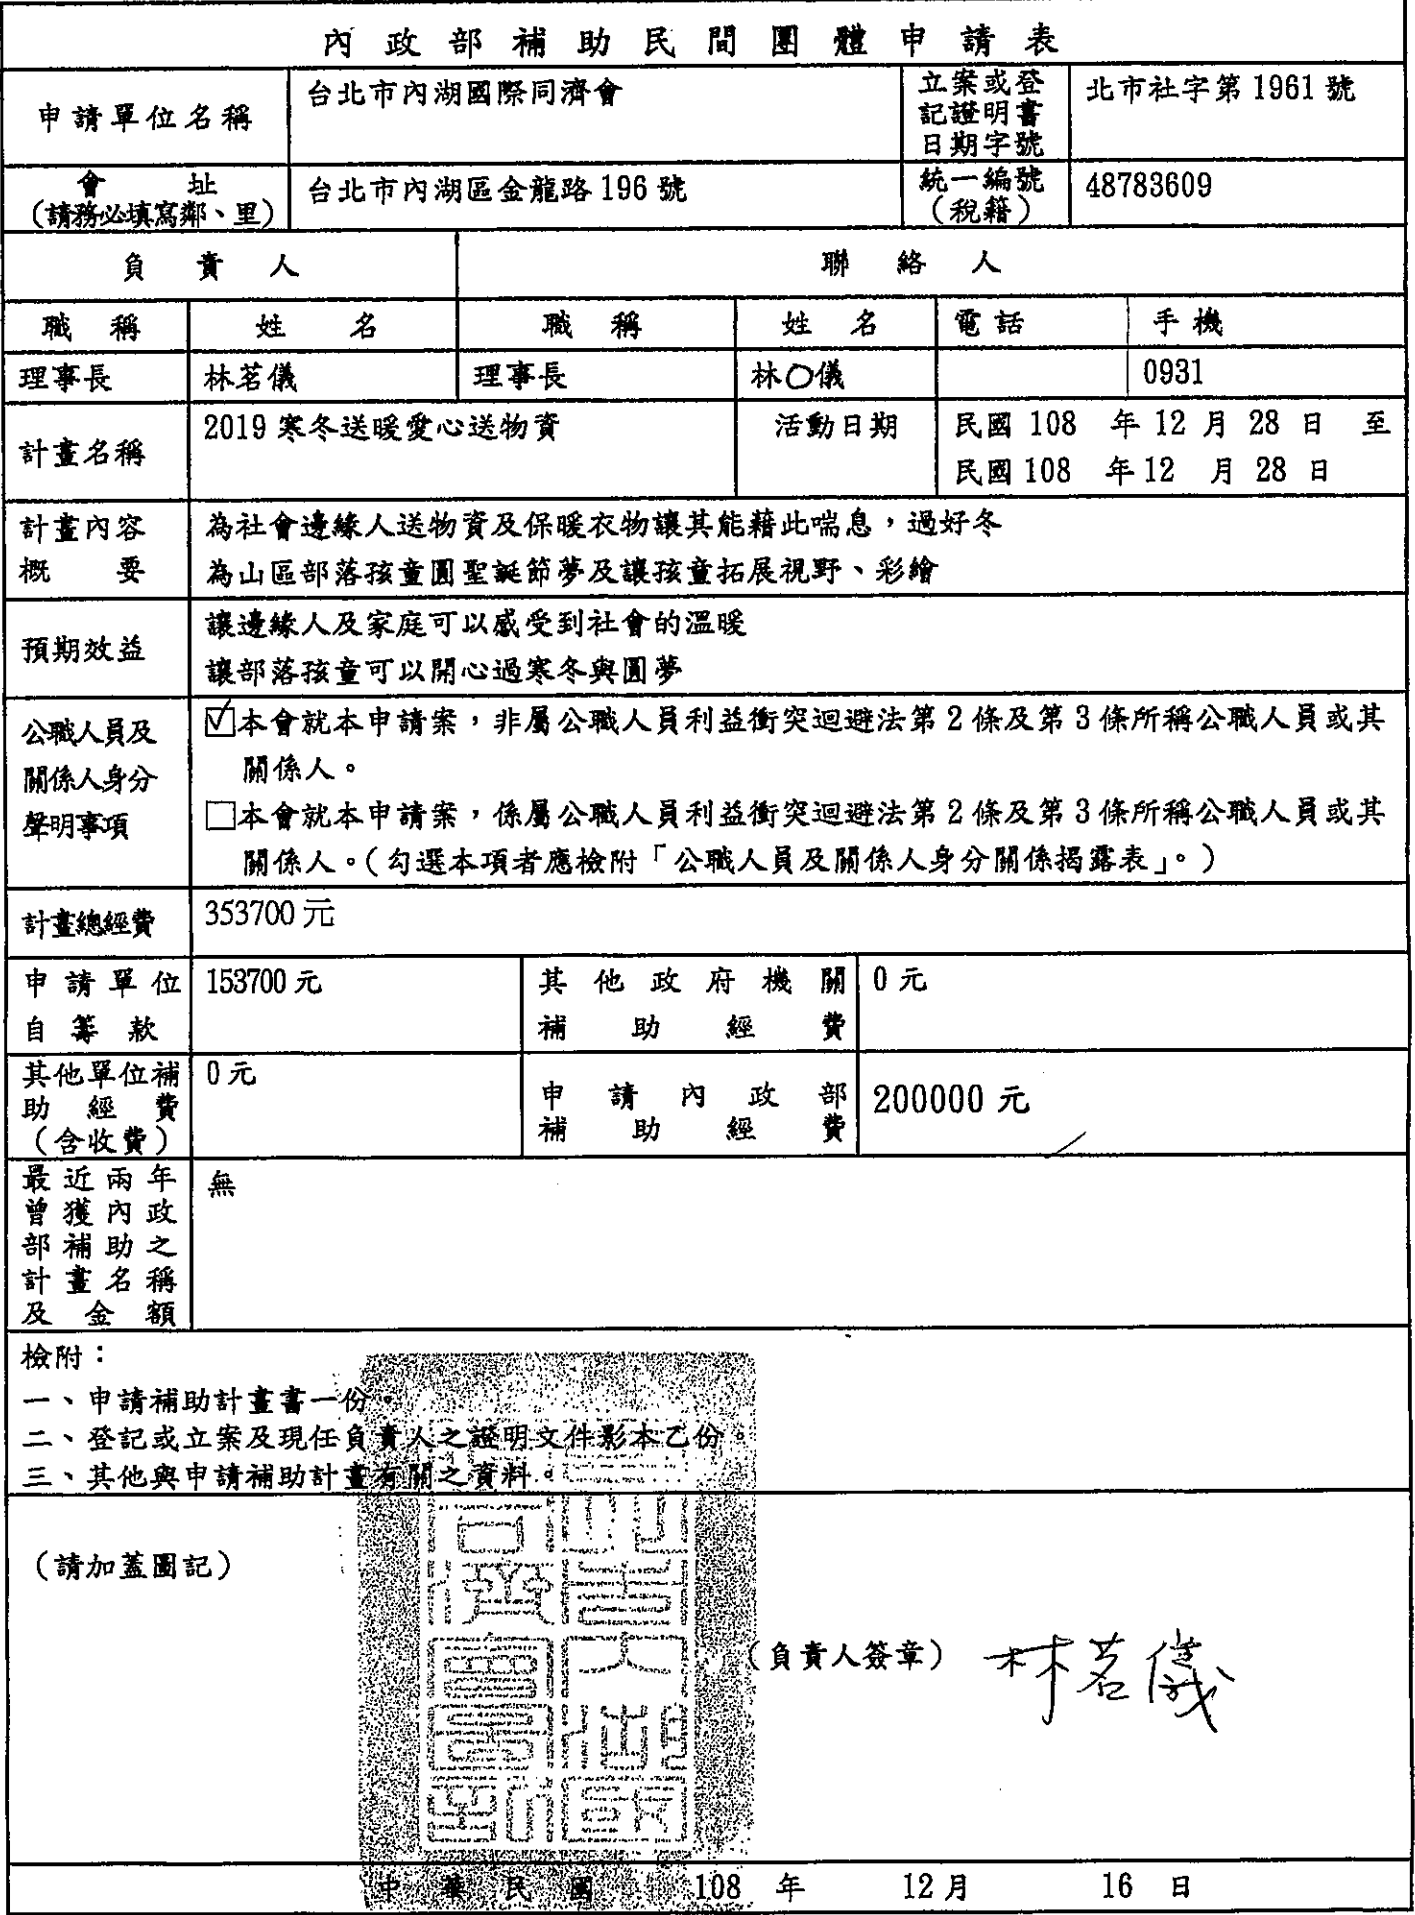 內政部補助民間團體申請表
申請單位名稱
台北市內湖國際同濟會
立案或登
記證明書
日期字號
北市社字第 1961 號
會 址
(請務必填寫鄰、里)
台北市內湖區金龍路 196 號
統一編號
(稅籍)
48783609
負 責 人
聯 絡 人
職 稱
姓 名
職 稱
姓 名
電 話
手 機
理事長
林茗儀
理事長
林○儀
0931
計畫名稱
2019 寒冬送暖愛心送物資
活動日期
民國 108 年 12 月 28 日 至
民國 108 年 12 月 28 日
計畫內容
概 要
為社會邊緣人送物資及保暖衣物讓其能藉此喘息,過好冬
為山區部落孩童圓聖誕節夢及讓孩童拓展視野、彩繪
預期效益
讓邊緣人及家庭可以感受到社會的溫暖
讓部落孩童可以開心過寒冬與圓夢
公職人員及
關係人身分
聲明事項
☑本會就本申請案,非屬公職人員利益衝突迴避法第 2 條及第 3 條所稱公職人員或其
關係人。
□本會就本申請案,係屬公職人員利益衝突迴避法第 2 條及第 3 條所稱公職人員或其
關係人。(勾選本項者應檢附「公職人員及關係人身分關係揭露表」。)
計畫總經費
353700 元
申請單位
自籌款
153700 元
其他政府機關
補助經費
0 元
其他單位補
助經費
(含收費)
0 元
申請內政部
補助經費
200000 元
最近兩年
曾獲內政
部補助之
計畫名稱
及金額
無
檢附:
一、申請補助計畫書一份。
二、登記或立案及現任負責人之證明文件影本乙份。
三、其他與申請補助計畫有關之資料。
(請加蓋圖記)
(負責人簽章) 林茗儀
中華民國 108 年 12 月 16 日